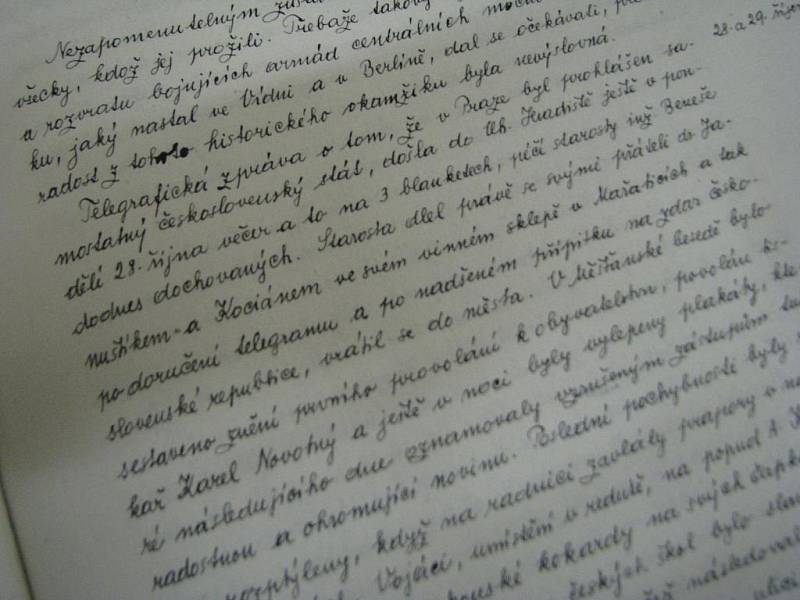 Nezapomenutelným
všecky, kdož jej prožili. Třebaže takový
a rozvratu bojujících armád centrálních
28. a 29. říjen
ku, jaký nastal ve Vídni a v Berlíně, dal se očekávati,
radost z tohoto historického okamžiku byla nevýslovná.
Telegrafická zpráva o tom, že v Praze byl prohlášen sa-
mostatný československý stát, došla do Uh. Hradiště ještě v pon-
dělí 28. října večer a to na 3 blanketech, péčí starosty inž Beneše
dodnes dochovaných. Starosta dlel právě se svými přáteli dr Ja-
nuštíkem a Kociánem ve svém vinném sklepě v Mařaticích a tak
po doručení telegramu a po nadšeném přípitku na zdar česko-
slovenské republice, vrátil se do města. V Měšťanské besedě bylo
sestaveno znění prvního provolání k obyvatelstvu, povolán tis-
kař Karel Novotný a ještě v noci byly vylepeny plakáty, kte-
ré následujícího dne oznamovaly vzrušeným zástupům
radostnou a ohromující novinu. Poslední pochybnosti byly
rozptýleny, když na radnici zavlály prapory v
Vojáci, umístění v redutě, na popud A.
kokardy na svých čapk
českých škol bylo
následoval
ulici